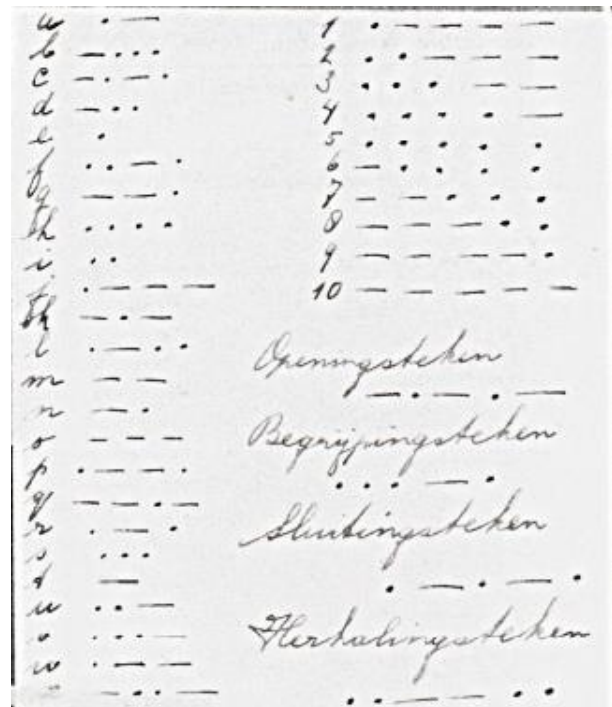 a . —
b — . . .
c — . — .
d — . .
e .
f . . — .
g — — .
h . . . .
i . .
. — — —
k — . —
l . — . .
m — —
n — .
o — — —
p . — — .
q — — . —
r . — .
s . . .
t —
u . . —
. . . —
w . — —
— . . —
1 . — — — —
2 . . — — —
3 . . . — —
4 . . . . —
5 . . . . .
6 — . . . .
7 — — . . .
8 — — — . .
9 — — — — .
10 — — — — —
Openingsteken
— . — . —
Begrijpingsteken
. . . — .
Sluitingsteken
. — . — .
Herhalingsteken
. . — — . .